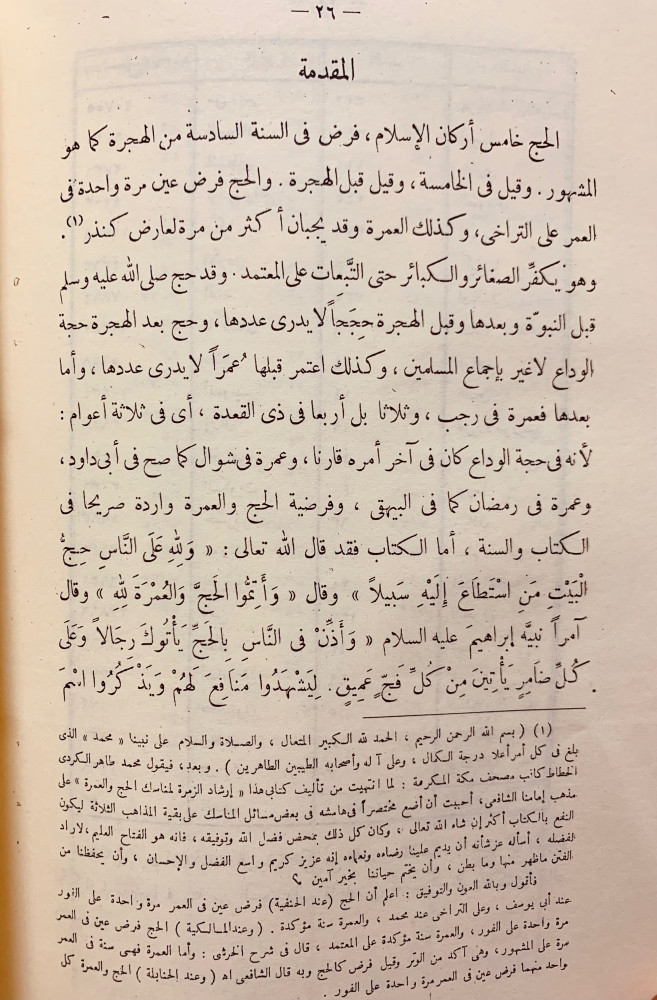 — ٢٦ —
المقدمة
الحج خامس أركان الإسلام ، فرض فى السنة السادسة من الهجرة كما هو
المشهور . وقيل فى الخامسة ، وقيل قبل الهجرة . والحج فرض عين مرة واحدة فى
العمر على التراخى ، وكذلك العمرة وقد يجبان أكثر من مرة لعارض كنذر (١) .
وهو يكفِّر الصغائر والكبائر حتى التَّبِعات على المعتمد . وقد حج صلى الله عليه وسلم
قبل النبوّة وبعدها وقبل الهجرة حِجَجاً لا يدرى عددها ، وحج بعد الهجرة حجة
الوداع لاغير بإجماع المسلمين ، وكذلك اعتمر قبلها عُمَراً لا يدرى عددها ، وأما
بعدها فعمرة فى رجب ، وثلاثا بل أربعا فى ذى القعدة ، أى فى ثلاثة أعوام :
لأنه فى حجة الوداع كان فى آخر أمره قارنا ، وعمرة فى شوال كما صح فى أبى داود ،
وعمرة فى رمضان كما فى البيهقى ، وفرضية الحج والعمرة واردة صريحا فى
الكتاب والسنة ، أما الكتاب فقد قال الله تعالى : « وَلِلهِ عَلَى النَّاسِ حِجُّ
الْبَيْتِ مَنِ اسْتَطَاعَ إِلَيْهِ سَبِيلاً » وقال « وَأَتِمُّوا الْحَجَّ وَالعُمْرَةَ لِلهِ » وقال
آمراً نبيَّه إبراهيمَ عليه السلام « وَأَذِّنْ فى النَّاسِ بِالحَجِّ يَأْتُوكَ رِجَالاً وَعَلَى
كُلِّ ضَامِرٍ يَأْتِينَ مِنْ كُلِّ فَجٍّ عَمِيقٍ . لِيَشْهَدُوا مَنَافِعَ لَهُمْ وَيَذْكُرُوا اسْمَ
(١) ( بسم الله الرحمن الرحيم ، الحمد لله الكبير المتعال ، والصلاة والسلام على نبينا « محمد » الذى
بلغ فى كل أمر أعلا درجة الكمال ، وعلى آله وأصحابه الطيبين الطاهرين ) . وبعد ، فيقول محمد طاهر الكردى
الخطاط كاتب مصحف مكة المكرمة : لما انتهيت من تأليف كتابى هذا « إرشاد الزمرة لمناسك الحج والعمرة » على
مذهب إمامنا الشافعى ، أحببت أن أضع مختصراً فى هامشه فى بعض مسائل المناسك على بقية المذاهب الثلاثة ليكون
النفع بالكتاب أكثر إن شاء الله تعالى ، وكان كل ذلك بمحض فضل الله وتوفيقه ، فانه هو الفتاح العليم ، لاراد
لفضله ، أسأله عز شأنه أن يديم علينا رضاءه ونعماءه إنه عزيز كريم واسع الفضل والإحسان ، وأن يحفظنا من
الفتن ماظهر منها وما بطن ، وأن يختم حياتنا بخير آمين
فأقول وبالله العون والتوفيق : اعلم أن الحج (عند الحنفية) فرض عين فى العمر مرة واحدة على الفور
عند أبى يوسف ، وعلى التراخى عند محمد ، والعمرة سنة مؤكدة . (وعند المالكية) الحج فرض عين فى العمر
مرة واحدة على الفور ، والعمرة سنة مؤكدة على المعتمد ، قال فى شرح الخرشى : وأما العمرة فهى سنة فى العمر
مرة على المشهور ، وهى آكد من الوتر وقيل فرض كالحج وبه قال الشافعى اه ( وعند الحنابلة ) الحج والعمرة كل
واحد منهما فرض عين فى العمر مرة واحدة على الفور .